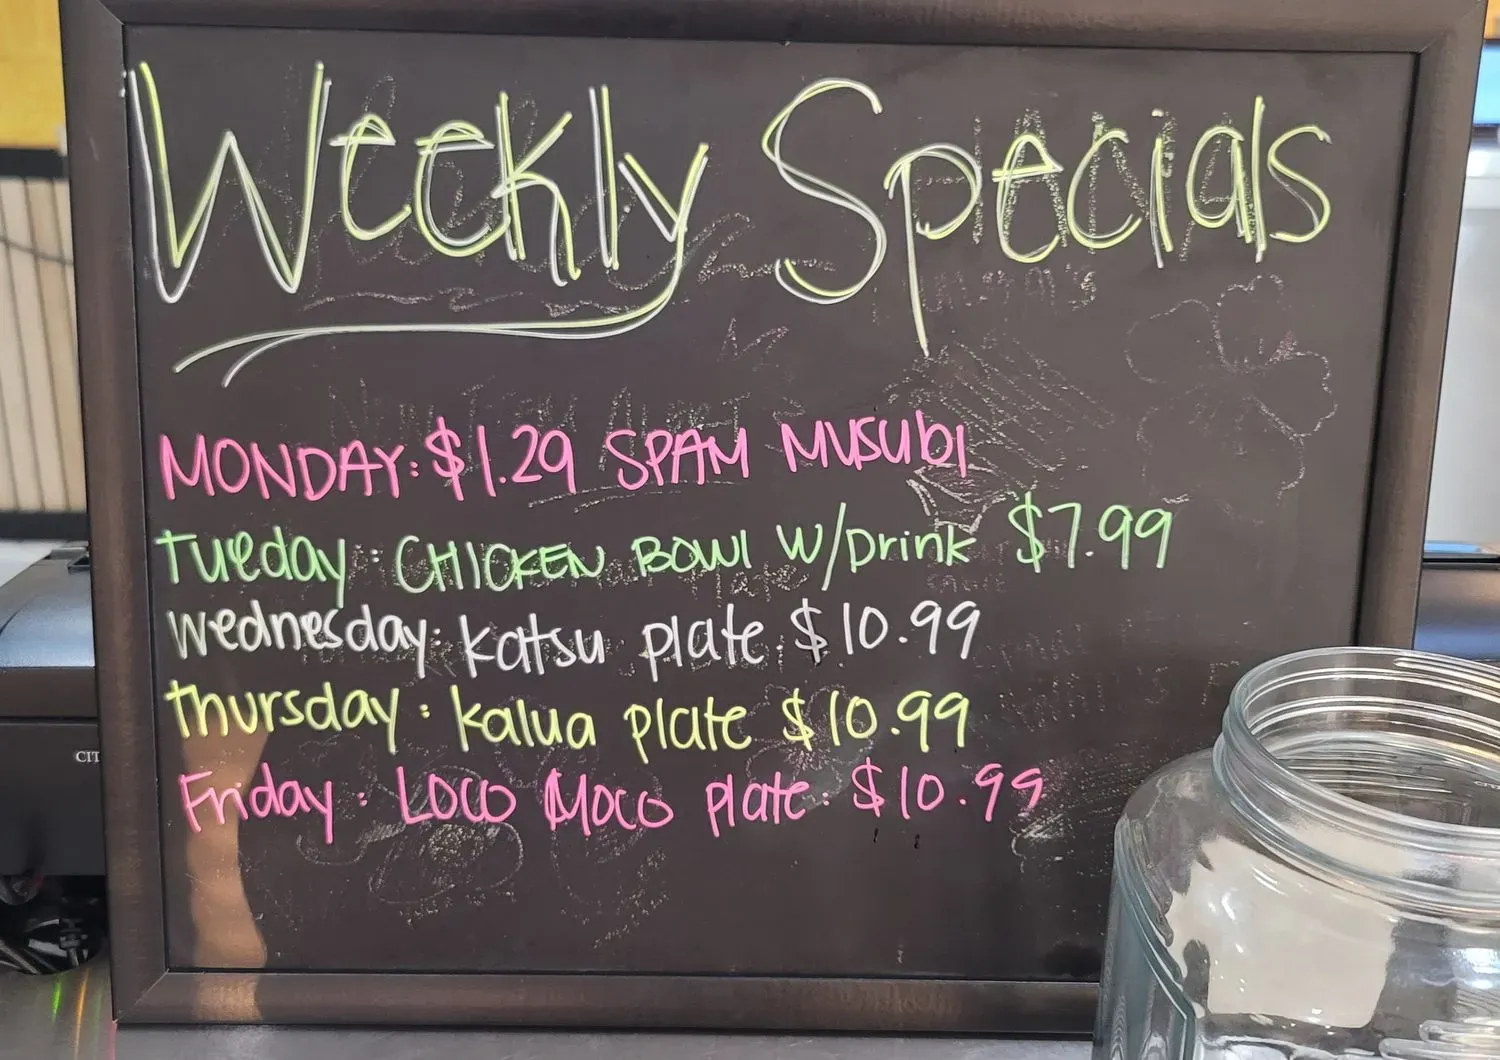 Weekly Specials
MONDAY: $1.29 SPAM MUSUbI
Tueday: CHICKEN BOWl W/Drink $7.99
Wednesday: katsu plate. $10.99
Thursday: kalua plate $10.99
Friday: Loco Moco plate: $10.99
CIT